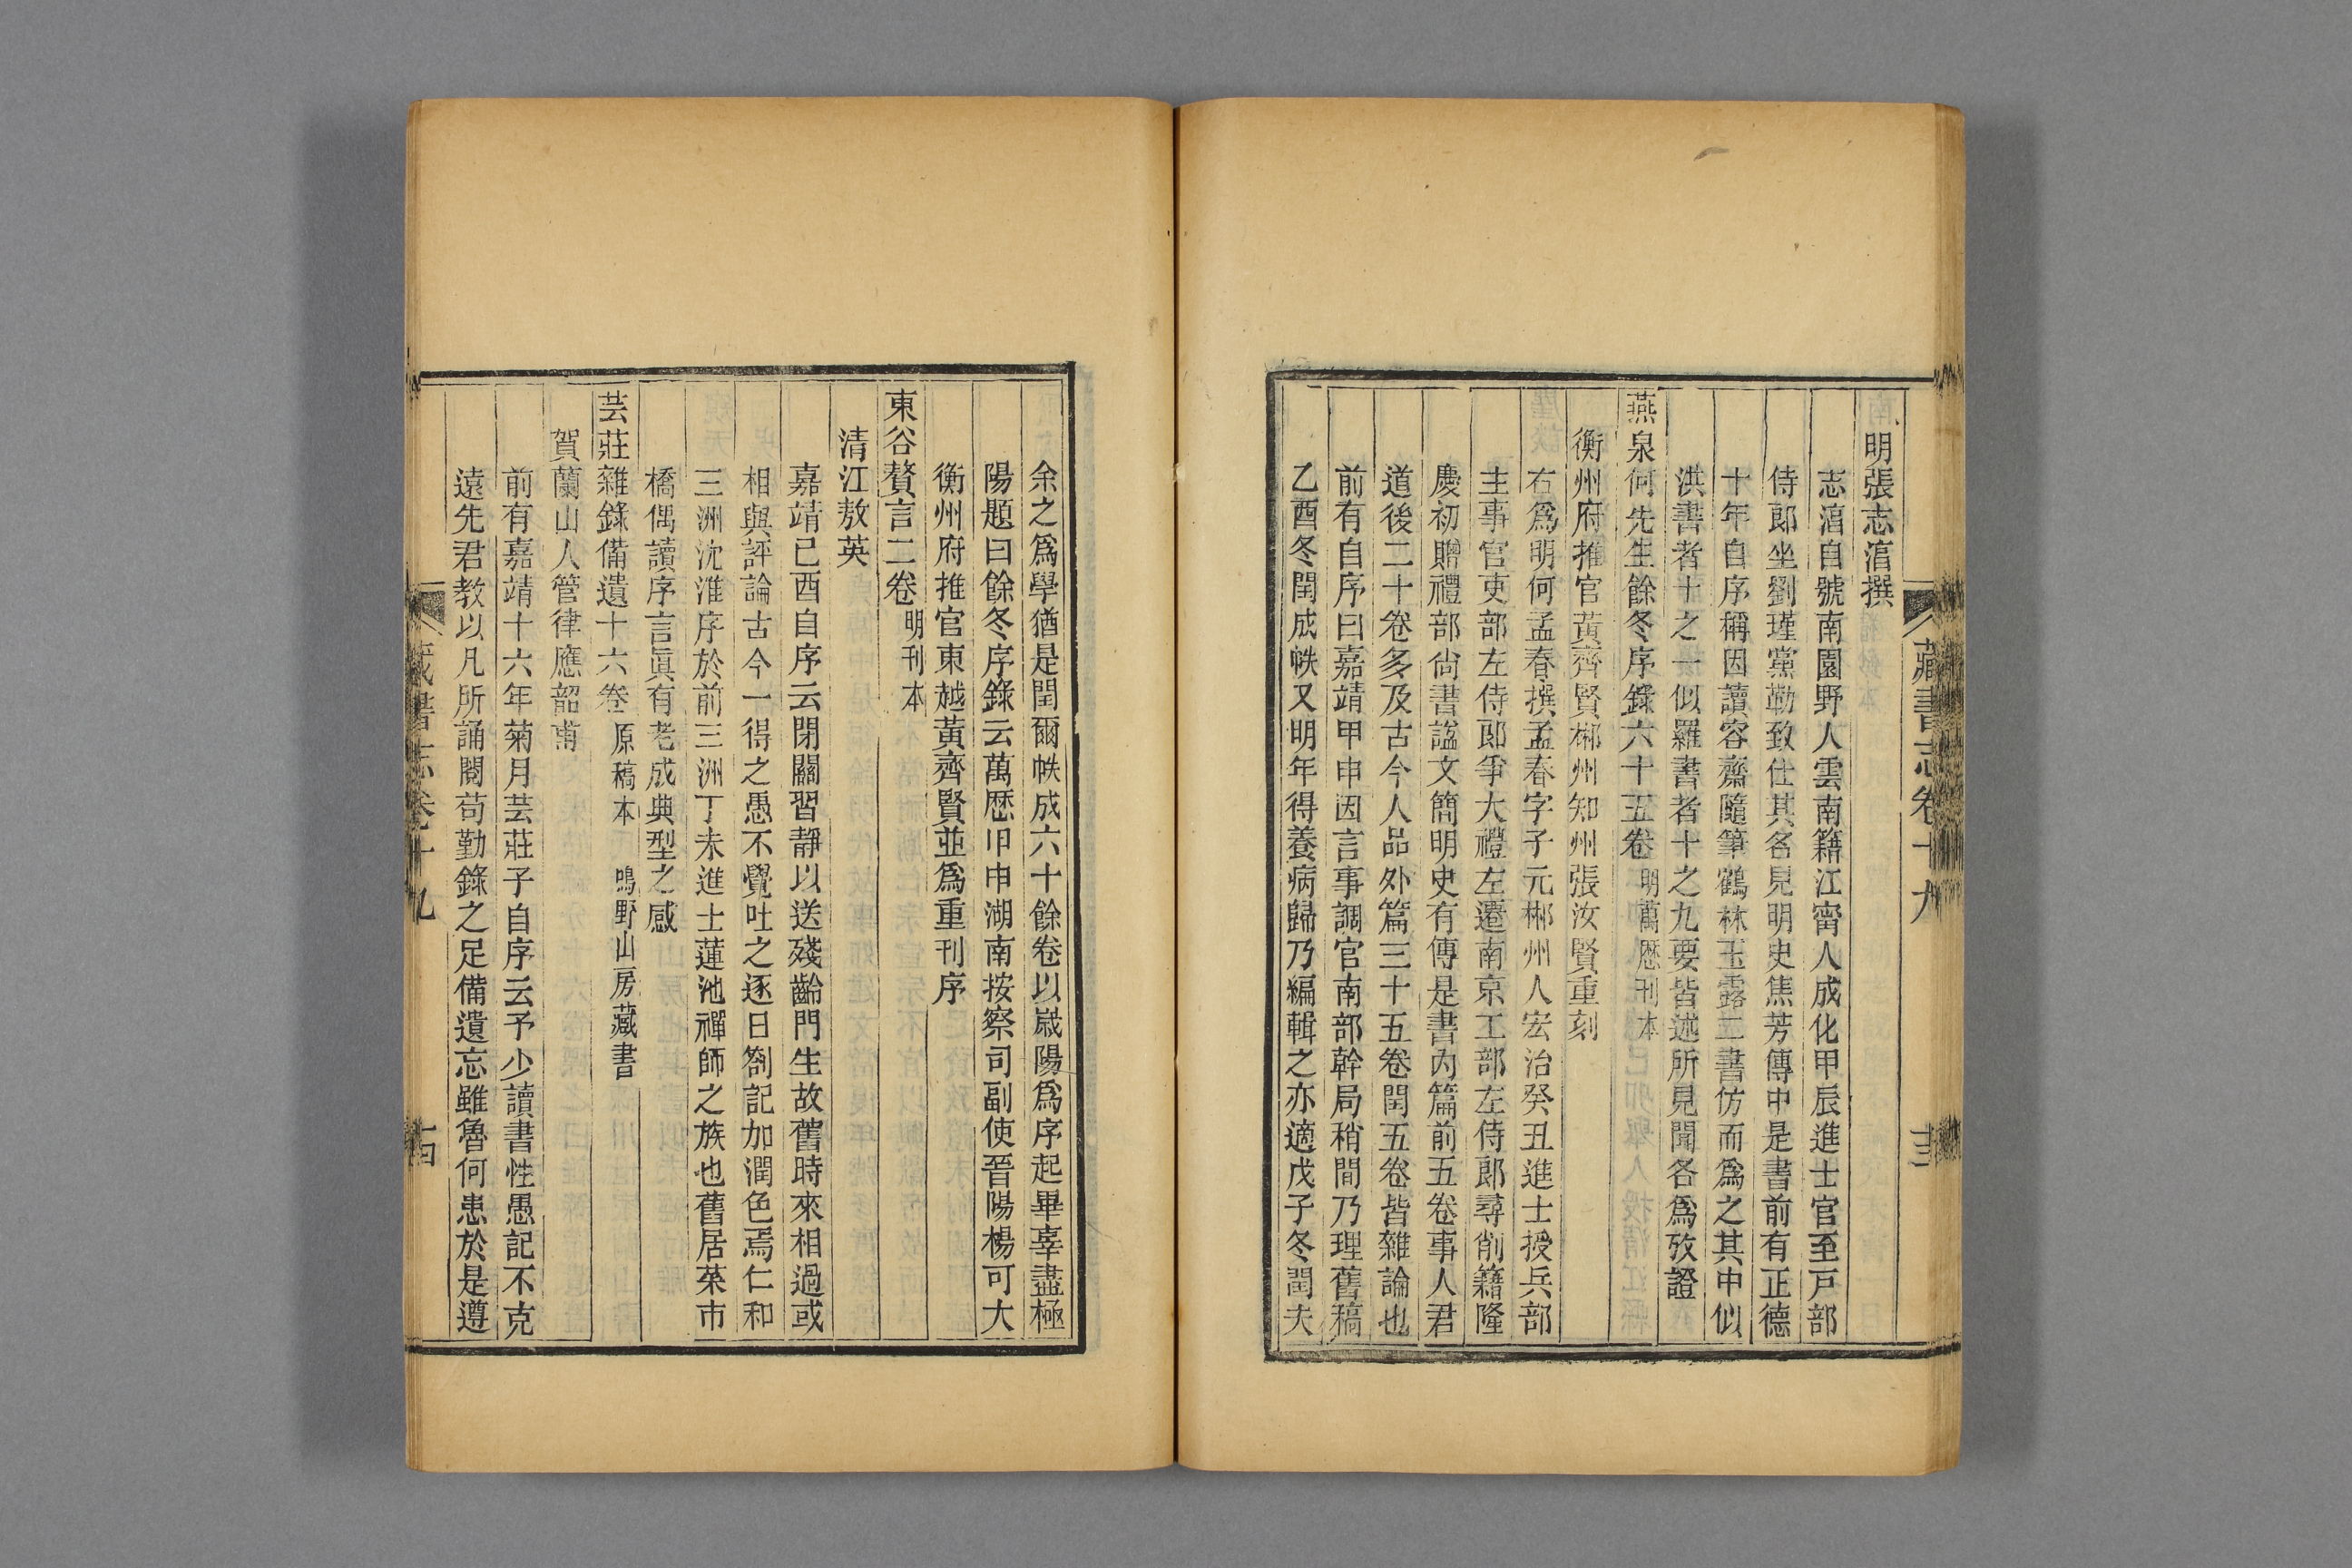 藏書志卷十九
明張志淯撰
志淯自號南園野人雲南籍江甯人成化甲辰進士官至戸部
侍郎坐劉瑾黨勒致仕其名見明史焦芳傳中是書前有正德
十年自序稱因讀容齋隨筆鶴林玉露二書仿而爲之其中似
洪書者十之一似羅書者十之九要皆述所見聞各爲攷證
燕泉何先生餘冬序錄六十五卷 明萬歷刊本
衡州府推官黃齊賢郴州知州張汝賢重刻
右爲明何孟春撰孟春字子元郴州人宏治癸丑進士授兵部
主事官吏部左侍郎爭大禮左遷南京工部左侍郎尋削籍隆
慶初贈禮部尙書諡文簡明史有傳是書內篇前五卷事人君
道後二十卷多及古今人品外篇三十五卷閏五卷皆雜論也
前有自序曰嘉靖甲申因言事調官南部幹局稍閒乃理舊稿
乙酉冬閏成帙又明年得養病歸乃編輯之亦適戊子冬閏夫
余之爲學猶是閏爾帙成六十餘卷以嵗陽爲序起畢辜盡極
陽題曰餘冬序錄云萬歷甲申湖南按察司副使晉陽楊可大
衡州府推官東越黃齊賢並爲重刊序
東谷贅言二卷 明刊本
清江敖英
嘉靖己酉自序云閉關習靜以送殘齡門生故舊時來相過或
相與評論古今一得之愚不覺吐之逐日劄記加潤色焉仁和
三洲沈淮序於前三洲丁未進士蓮池禪師之族也舊居菜市
橋偶讀序言眞有老成典型之感
芸莊雜錄備遺十六卷 原稿本 鳴野山房藏書
賀蘭山人管律應韶甫
前有嘉靖十六年菊月芸莊子自序云予少讀書性愚記不克
遠先君教以凡所誦閱苟勤錄之足備遺忘雖魯何患於是遵
藏書志卷十九 十四